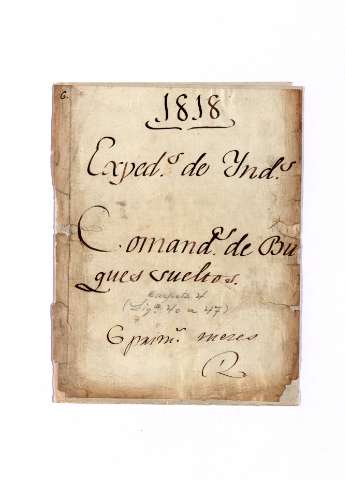 6.
1818
Exped.s de Ynd.s
Comand.tes de Bu
ques sueltos.
Carpeta 4
(Dig.s 40 a 47)
6 prim.s meses
R